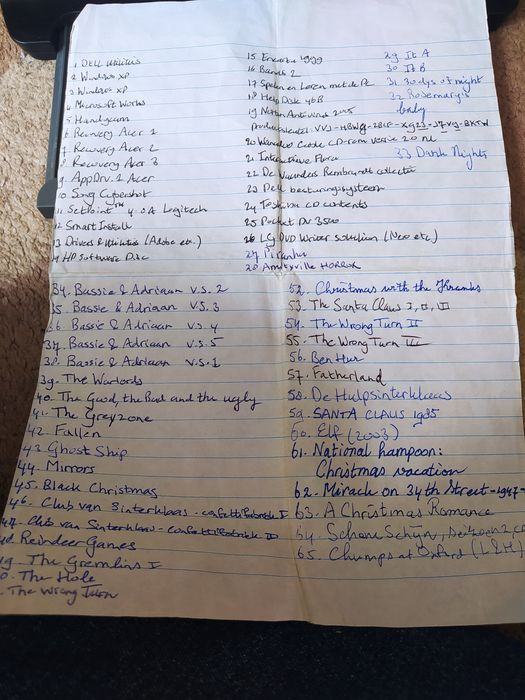 1 DELL Utilities
2 Windows XP
3 Windows XP
4 Microsoft Works
5 Handycam
6 Recovery Acer 1
7 Recovery Acer 2
8 Recovery Acer 3
9 App Drv. 1 Acer
10 Sony Cybershot
11 SetPoint™ 4.0A Logitech
12 Smart Install
13 Drivers & Utilities (Adobe etc.)
14 HP Software Disc
15 Encarta 1999
16 Bands 2
17 Spelen en Leren met de Pc
18 Help Disk
19 Norton Antivirus 2005
20 CD-rom versie 2.0 nl
21 Interactive Flora
22 De Rembrandt collectie
23 Dell besturingssysteem
24 Toshiba CD contents
25 Pocket DV 3500
26 LG DVD Writer solution (Nero etc.)
27 Piranha
28 Amityville HORROR
29 It A
30 It B
31 30 dys of night
32 Rosemary's
baby
33 Dark Nights
34. Bassie & Adriaan V.S. 2
35. Bassie & Adriaan V.S. 3
36. Bassie & Adriaan V.S. 4
37. Bassie & Adriaan V.S. 5
38. Bassie & Adriaan V.S. 1
39. The Warlords
40. The Good, the Bad and the ugly
41. The Greyzone
42. Fallen
43. Ghost Ship
44. Mirrors
45. Black Christmas
46. Club van Sinterklaas - confettifabriek I
47. Club van Sinterklaas - confettifabriek II
48. Reindeer Games
49. The Gremlins I
50. The Hole
The Wrong Turn
52. Christmas with the Kranks
53. The Santa Claus I, II, III
54. The Wrong Turn II
55. The Wrong Turn III
56. Ben Hur
57. Fatherland
58. De Hulpsinterklaas
59. SANTA CLAUS 1985
60. Elf (2003)
61. National Lampoon:
Christmas vacation
62. Miracle on 34th Street - 1947-
63. A Christmas Romance
64. Schone Schijn, seizoen 2,
65. Chumps at Oxford (L&H)